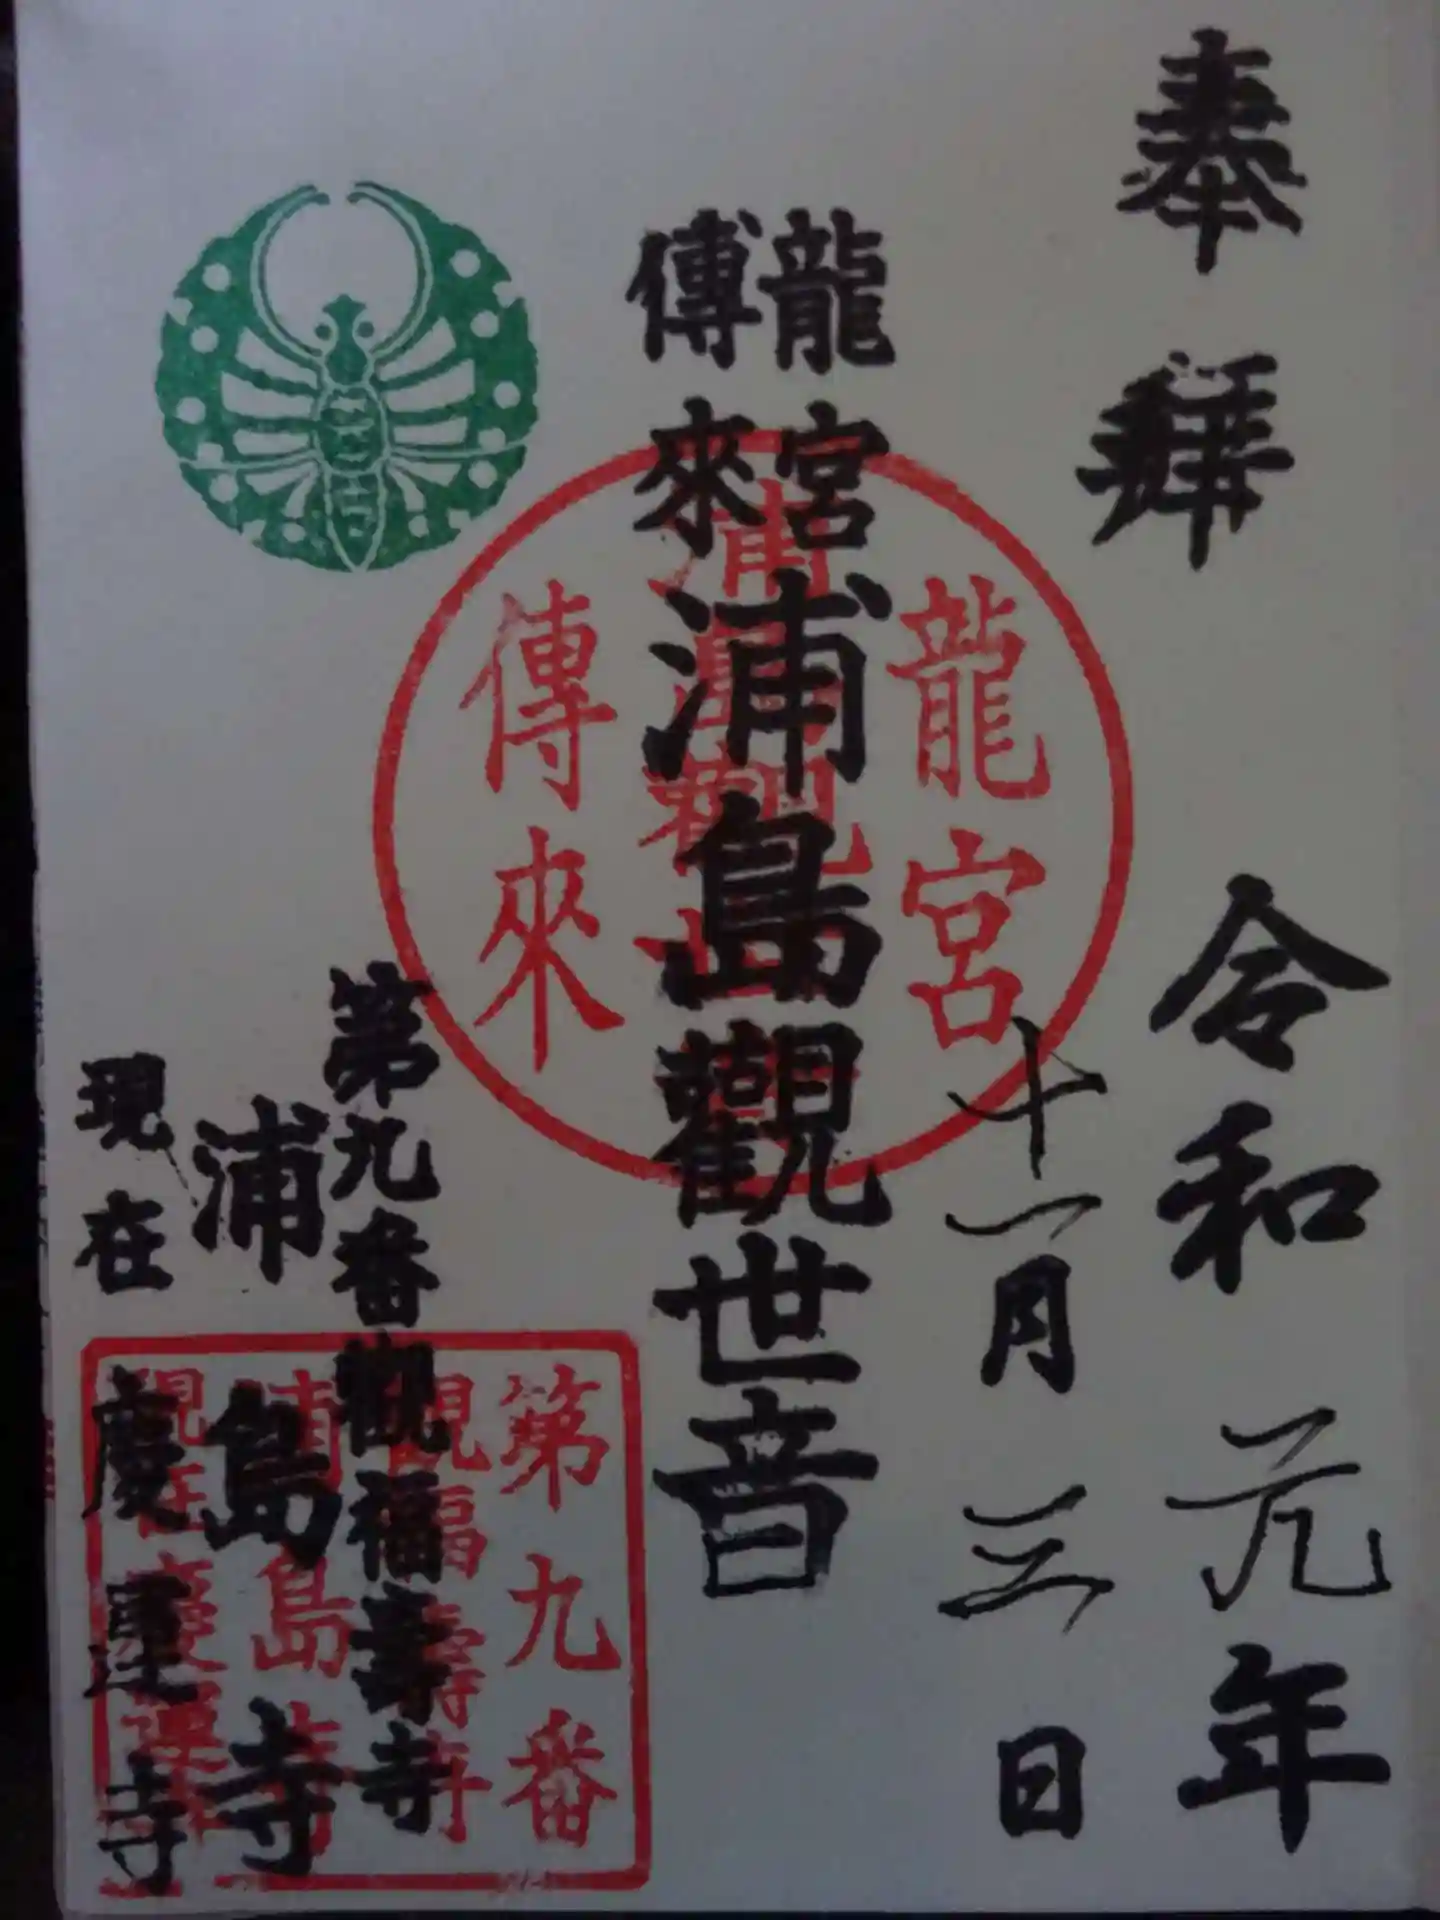 奉拜
令和元年
十一月三日
龍宮
傳來
浦島觀世音
龍宮
浦島觀世音
傳來
第九番觀福壽寺
浦島寺
現在慶運寺
第九番
觀福壽寺
浦島寺
現在慶運寺